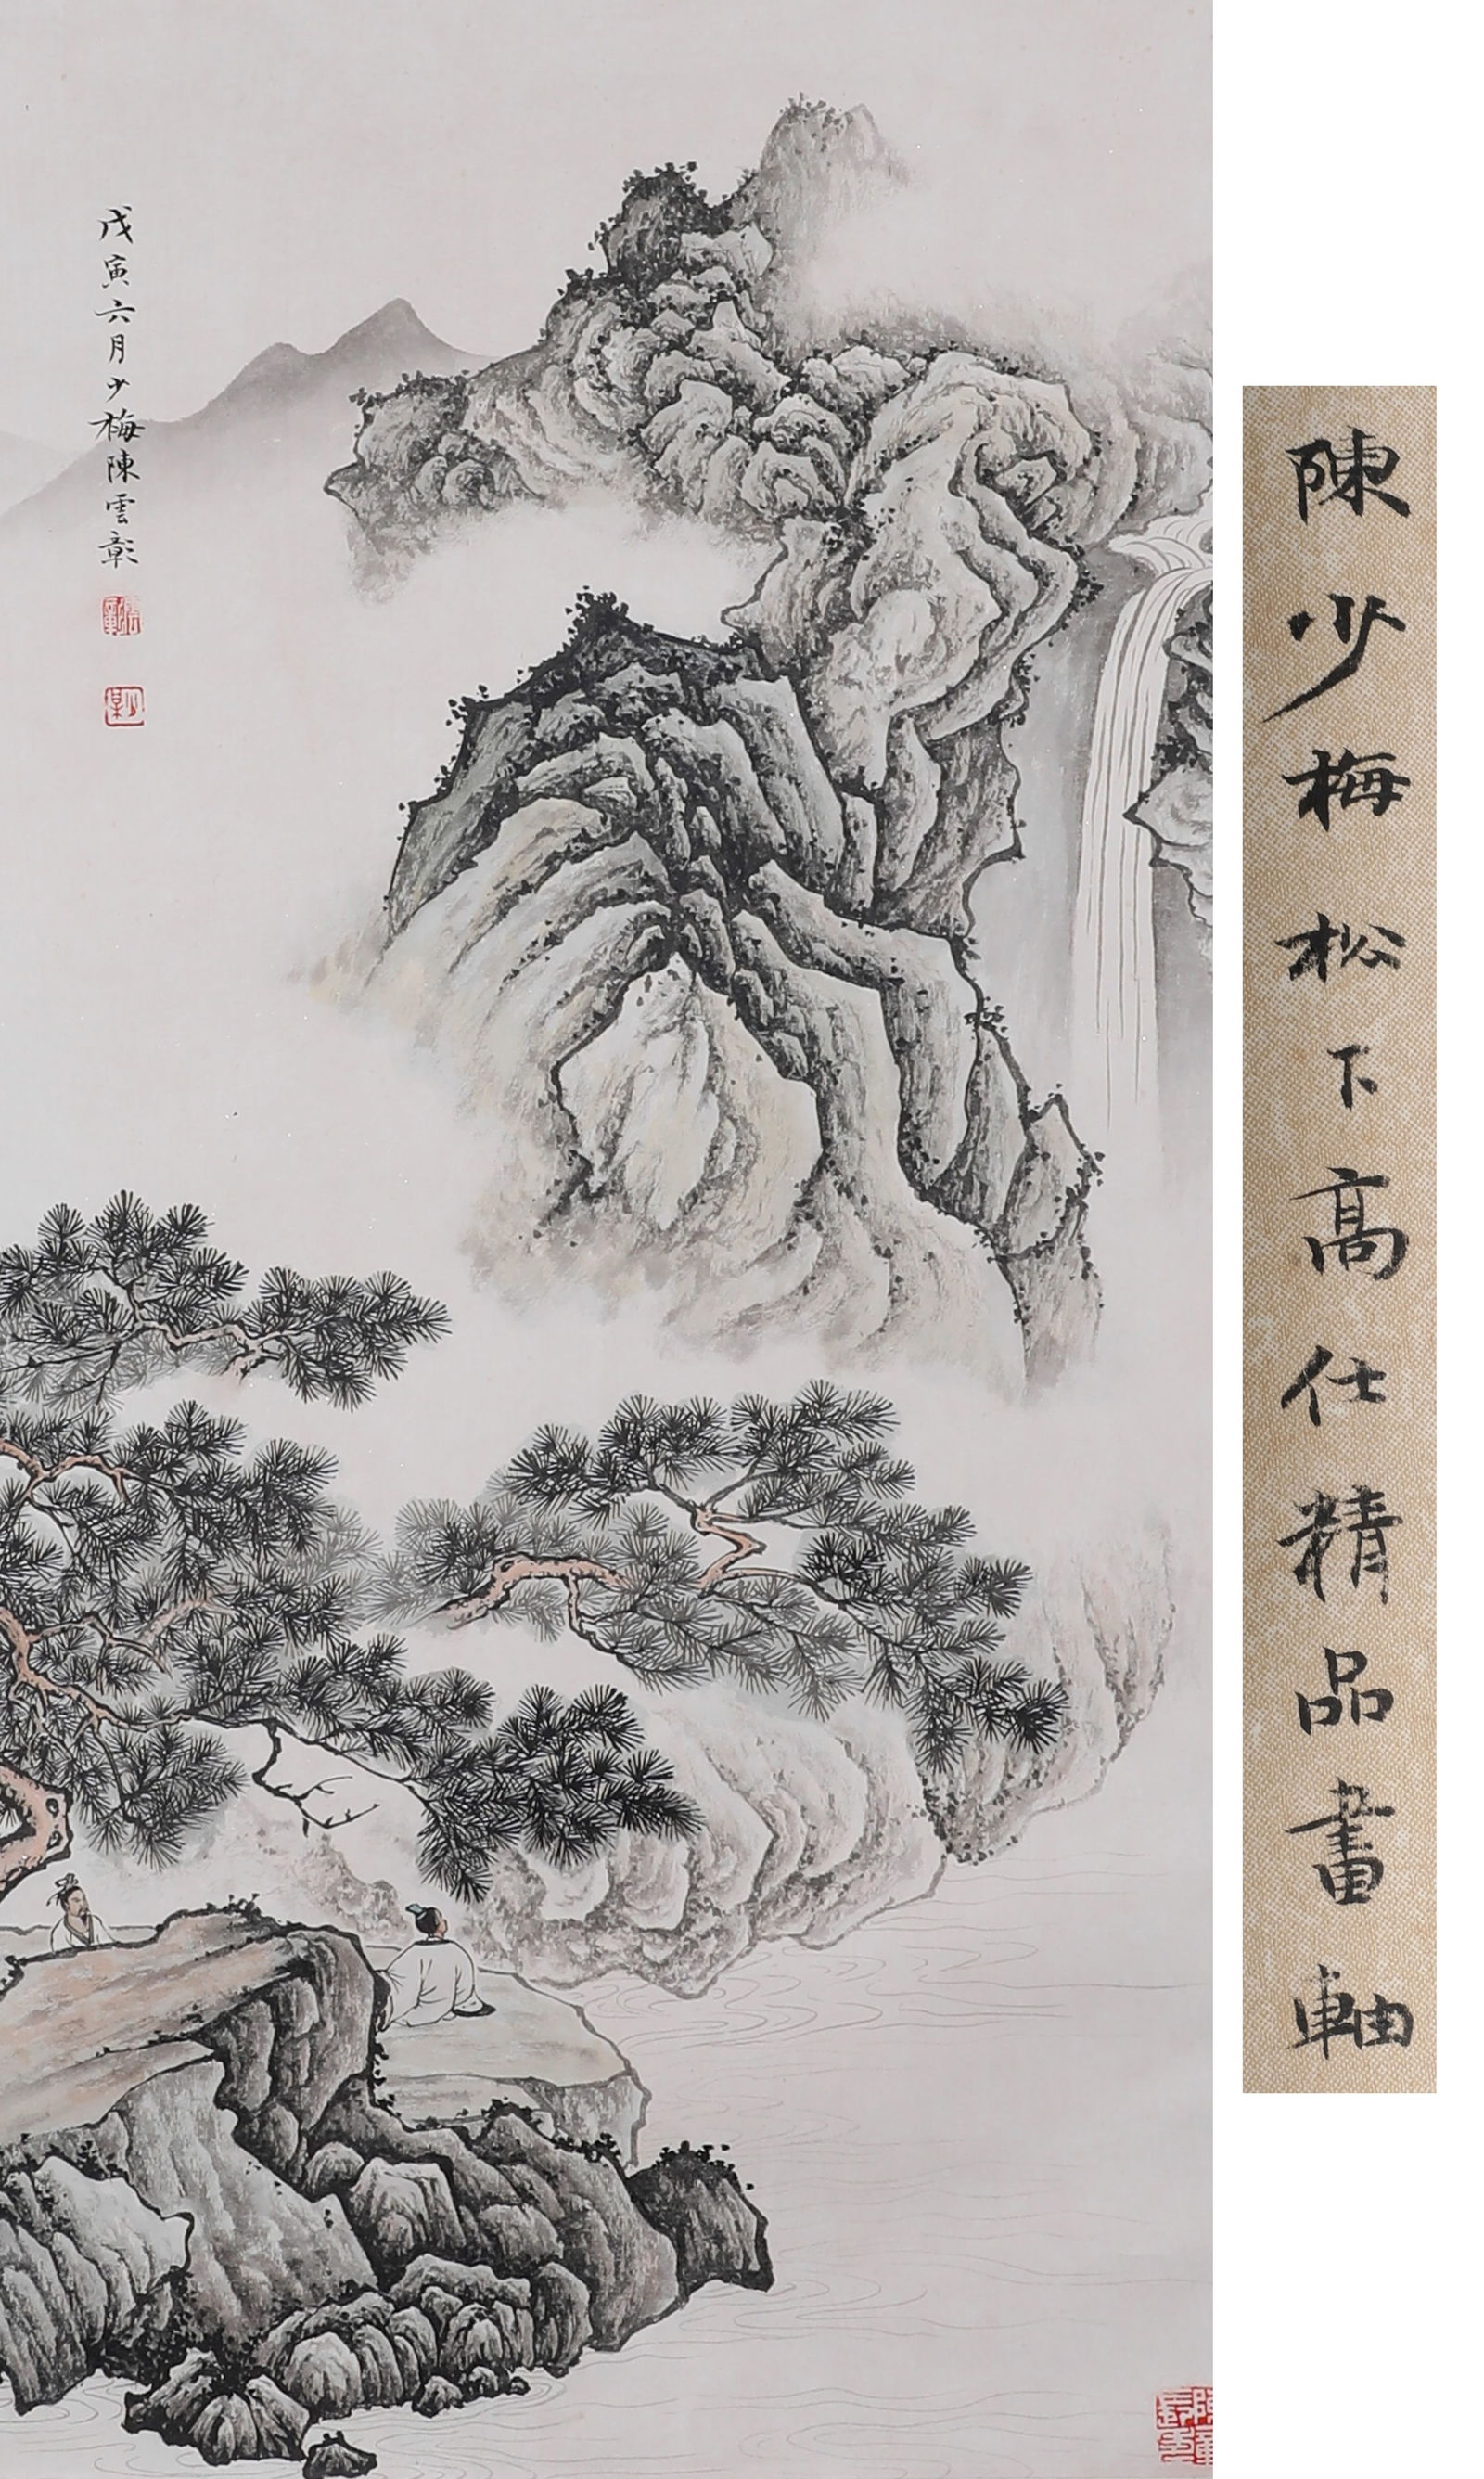 戊寅六月少梅陳雲彰
雲彰
少梅
陳少梅松下高仕精品畫軸